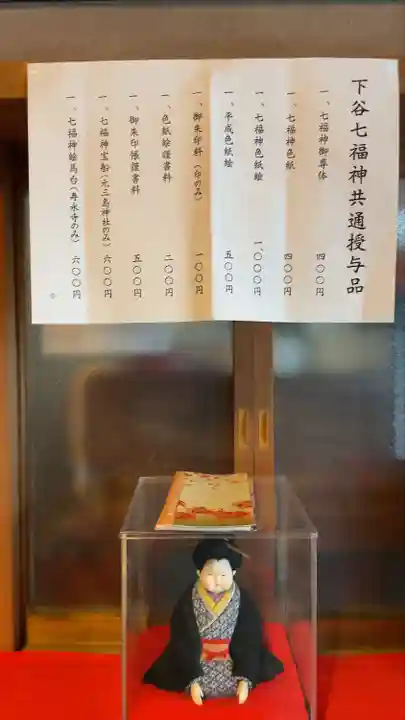 下谷七福神共通授与品
一、七福神御尊体 四〇〇円
一、七福神色紙 四〇〇円
一、七福神色紙絵 一、〇〇〇円
一、平成色紙絵 五〇〇円
一、御朱印料（印のみ） 一〇〇円
一、色紙絵謹書料 二〇〇円
一、御朱印帳謹書料 五〇〇円
一、七福神宝船（元三島神社のみ） 六〇〇円
一、七福神絵馬台（寿永寺のみ） 六〇〇円